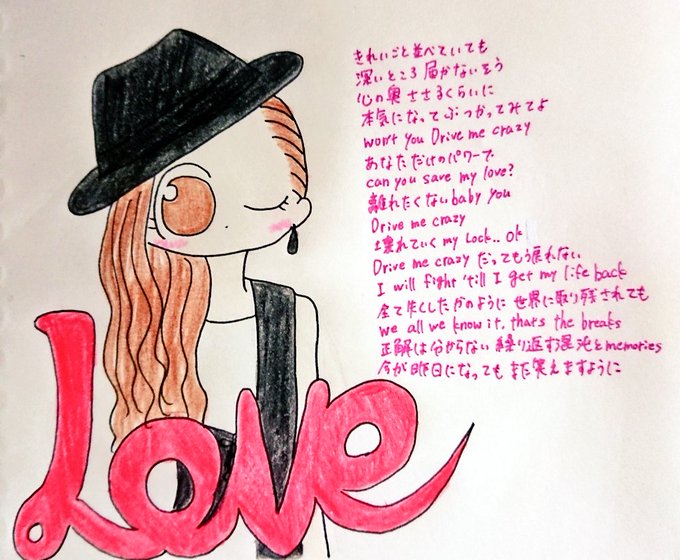 きれいごと並べていても
深いところ届かないそう
心の奥ささるくらいに
本気になってぶつかってみてよ
won't you Drive me crazy
あなただけのパワーで
can you save my love?
離れたくない baby you
Drive me crazy
壊れていく my Lock.. ok
Drive me crazy だってもう戻れない
I will fight 'till I get my life back
全て失くしたかのように 世界に取り残されても
we all we know it. thats the breaks
正解は分からない 繰り返す混沌と memories
今が昨日になっても まだ笑えますように
Love